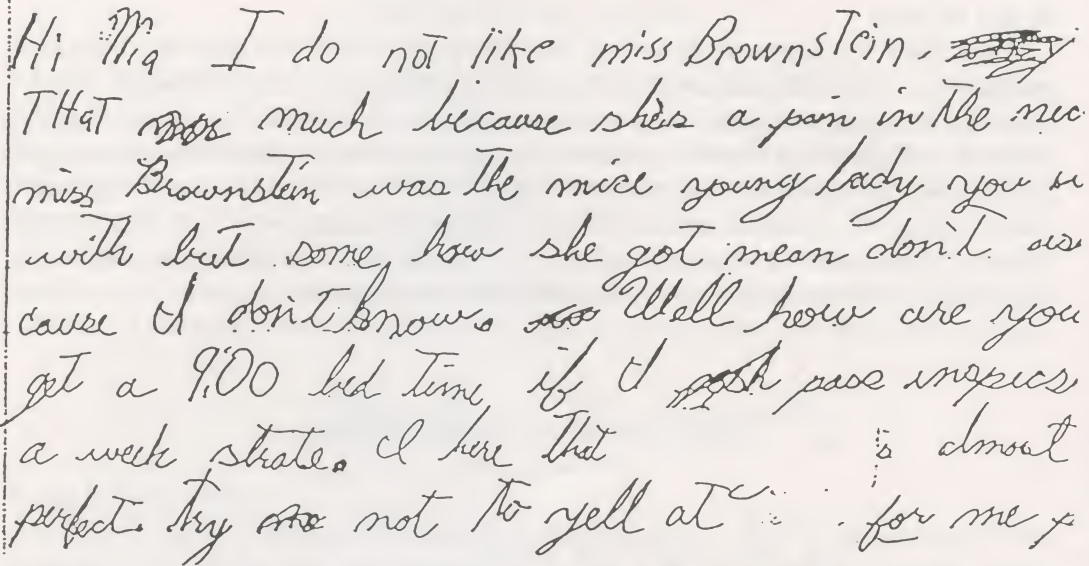 Hi Mia I do not like miss Brownstein.
THat much because she's a pain in the nec
miss Brownstein was the nice young lady you
with but some how she got mean don't as
cause I don't know. Well how are you
get a 9:00 bed time if I pass inspecs
a week strate. I here that is almost
perfect. try not to yell at for me